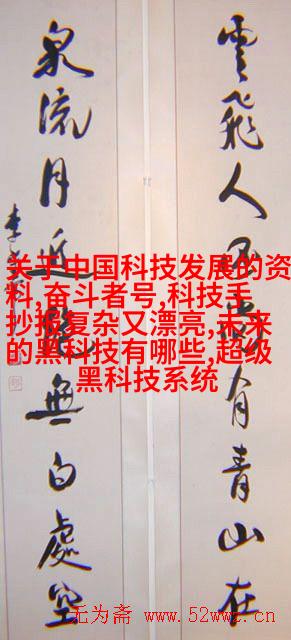 雲飛人有青山在
泉流月無白處空
李
关于中国科技发展的资
料,奋斗者号,科技手
抄报复杂又漂亮,未来
的黑科技有哪些,超级
黑科技系统
无为斋 www.52wwz.cn